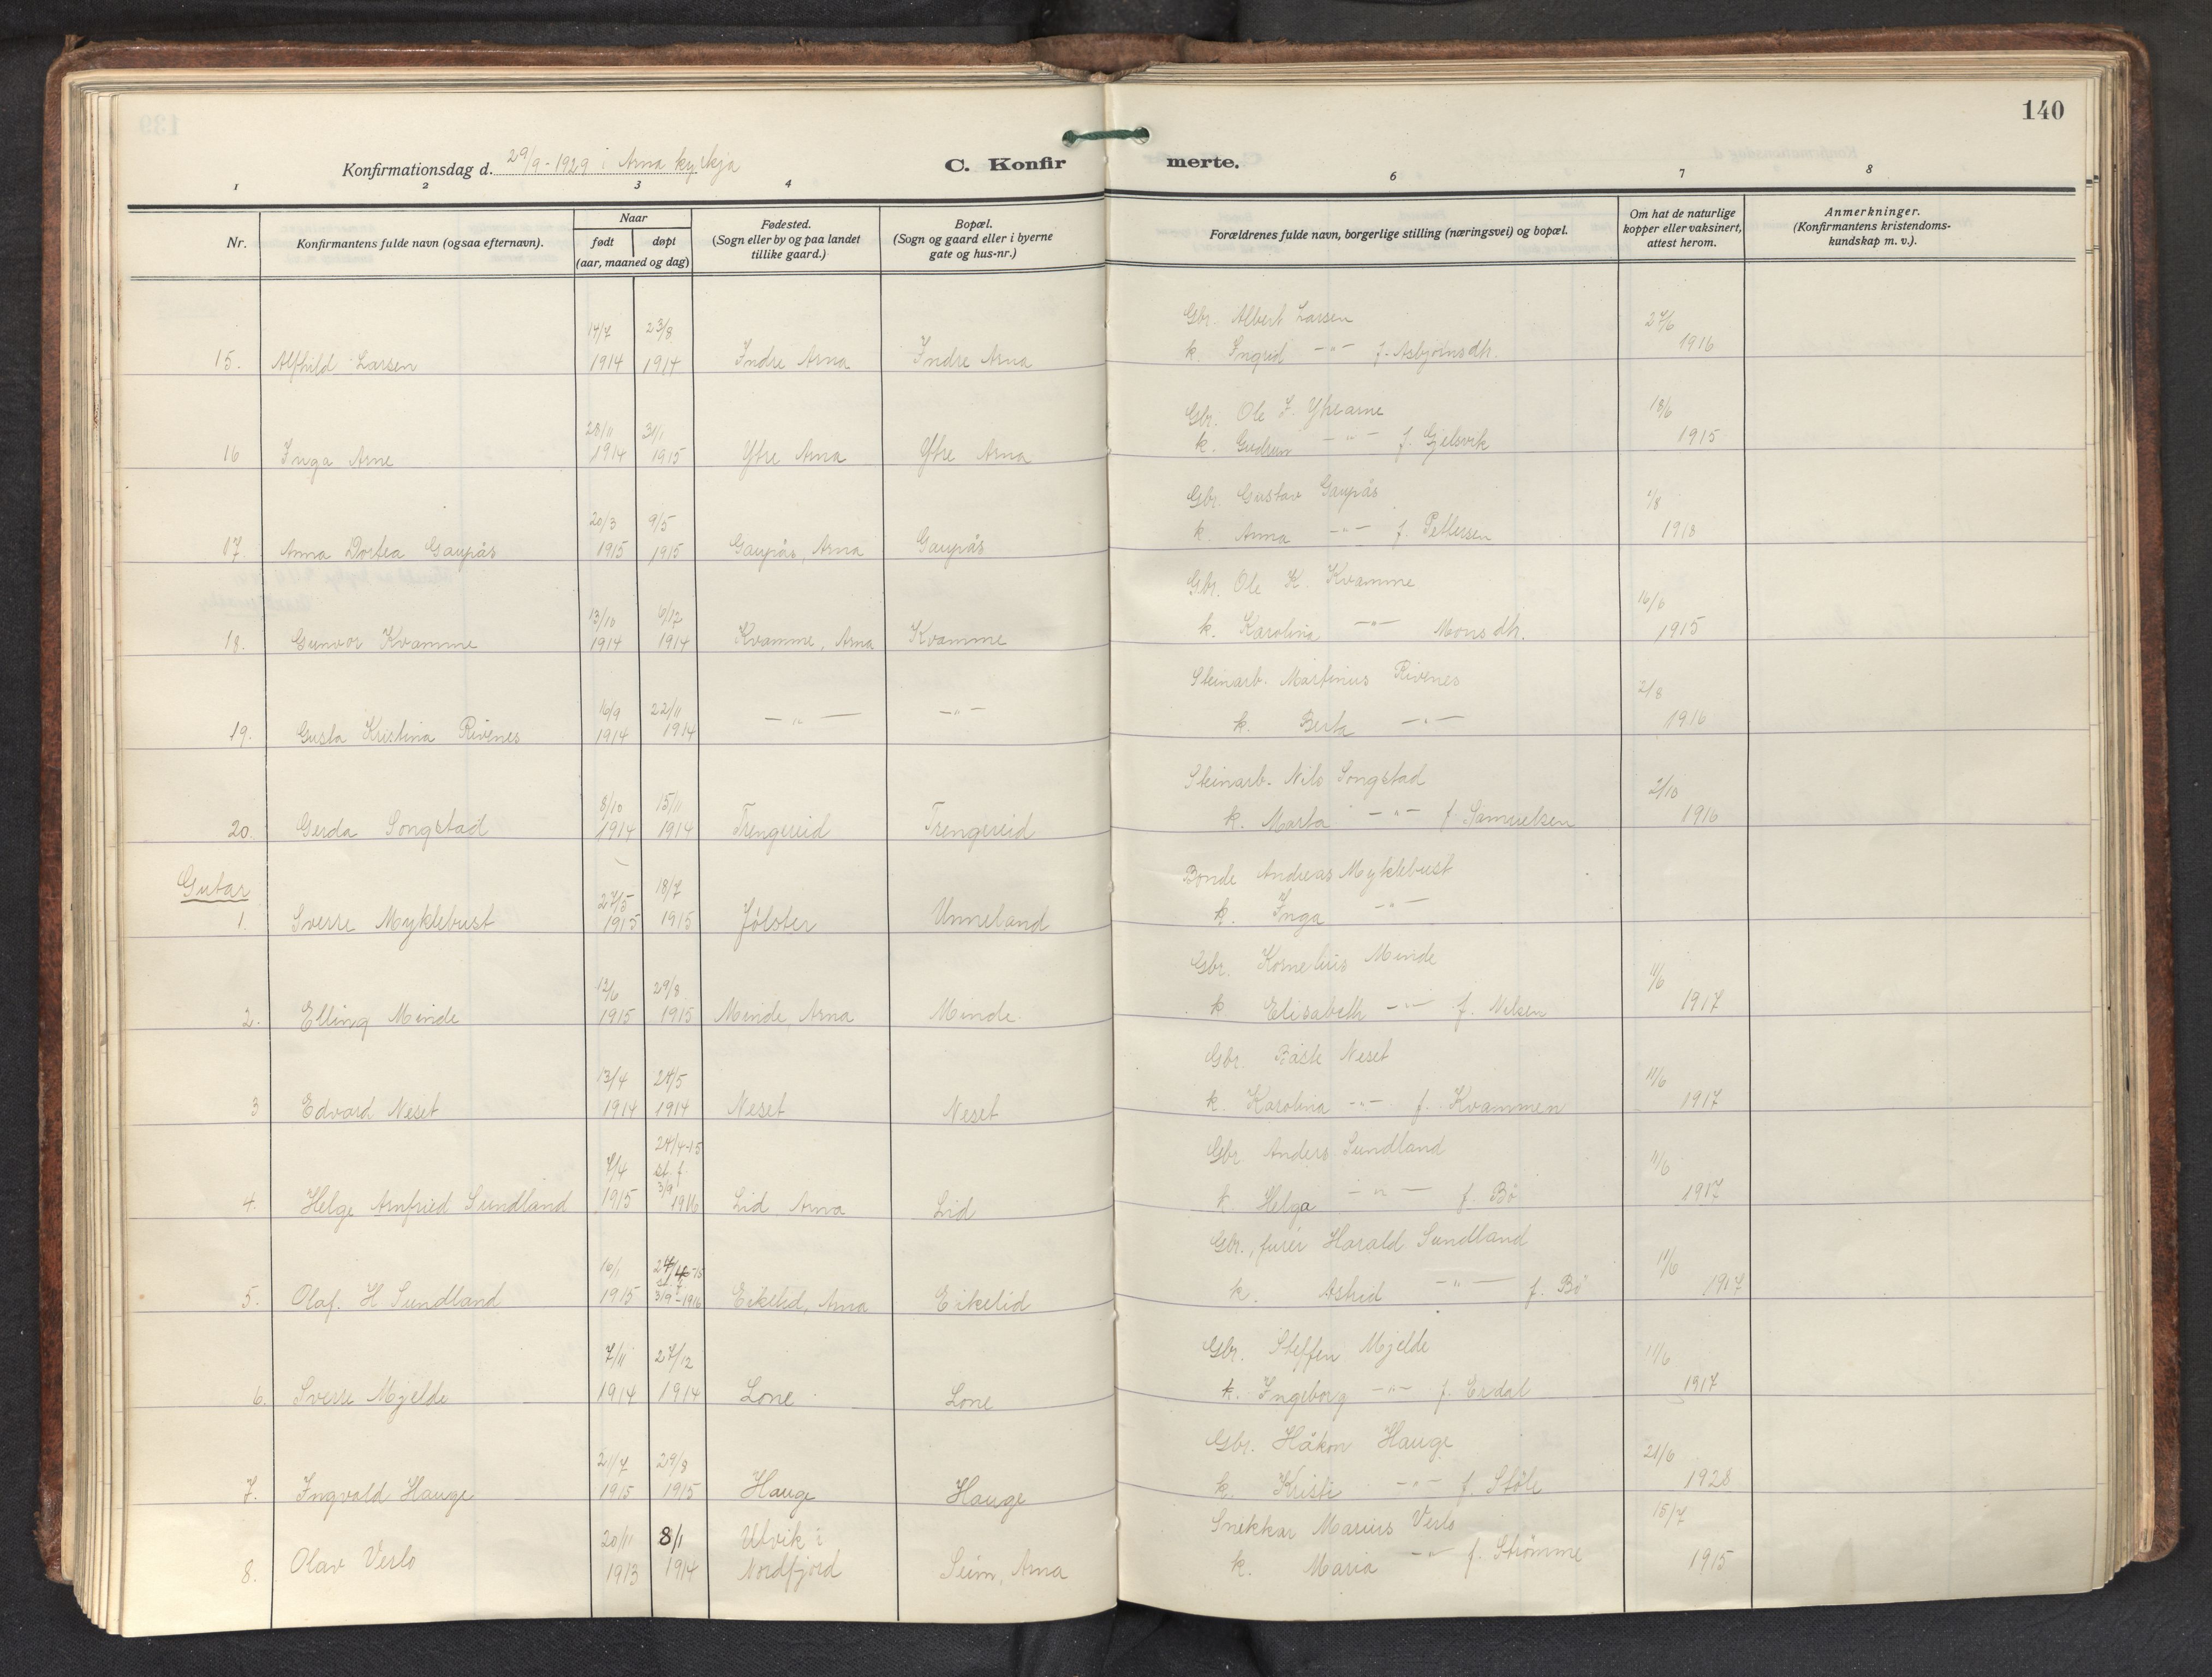 140
Konfirmationsdag d. 29/9-1929 i Arna kyrkja
C. Konfirmerte.
1 2 3 4 6 7 8
Nr.
Konfirmantens fulde navn (ogsaa efternavn).
Naar
født døpt
(aar, maaned og dag)
Fødested.
(Sogn eller by og paa landet
tillike gaard.)
Bopæl.
(Sogn og gaard eller i byerne
gate og hus-nr.)
Forældrenes fulde navn, borgerlige stilling (næringsvei) og bopæl.
Om hat de naturlige
kopper eller vaksinert,
attest herom.
Anmerkninger.
(Konfirmantens kristendoms-
kundskap m. v.).
14/7 23/8 Gbr. Albert Larsen 27/6
15. Alfhild Larsen 1914 1914 Indre Arna Indre Arna k. Ingrid -"- f. Asbjørnsdh. 1916
28/11 31/1 Gbr. Ole J. Ytrearne 18/6
16 Inga Arne 1914 1915 Ytre Arna Ytre Arna k. Gudrun -"- f. Gjelsvik 1915
20/3 9/5 Gbr. Gustav Gaupås 1/8
17. Anna Dortea Gaupås 1915 1915 Gaupås, Arna Gaupås k. Anna -"- f. Pettersen 1918
13/10 6/12 Gbr. Ole K. Kvamme 16/6
18. Gunvor Kvamme 1914 1914 Kvamme, Arna Kvamme k. Karolina -"- Monsdh. 1915
16/9 22/11 Steinarb. Martinus Rivenes 2/8
19. Gusta Kristina Rivenes 1914 1914 -"- -"- k. Berta -"- 1916
8/10 15/11 Steinarb. Nils Songstad 2/10
20. Gerda Songstad 1914 1914 Trengereid Trengereid k. Marta -"- f. Samuelsen 1916
Gutar
27/5 18/7 Bonde Andreas Myklebust
1. Sverre Myklebust 1915 1915 Jølster Unneland k. Inga -"-
12/6 29/8 Gbr. Kornelius Minde 11/6
2. Elling Minde 1915 1915 Minde, Arna Minde. k. Elisabeth -"- f. Nilsen 1917
13/4 24/5 Gbr. Båste Neset 11/6
3 Edvard Neset 1914 1914 Neset Neset k. Karolina -"- f. Kvammen 1917
24/4-15
7/4 st. f. Gbr. Anders Sundland 11/6
3/9
4. Helge Arnfried Sundland 1915 1916 Lid, Arna Lid k. Helga -"- f. Bö 1917
16/1 24/4-15 Gbr., furer Harald Sundland 11/6
st. f.
5. Olaf. H Sundland 1915 3/9-1916 Eikelid, Arna Eikelid k. Astrid -"- f. Bö 1917
7/11 27/12 Gbr. Steffen Mjelde 11/6
6. Sverre Mjelde 1914 1914 Lone Lone k. Ingeborg -"- f. Erdal 1917
21/7 29/8 Gbr. Håkon Hauge 21/6
7. Ingvald Hauge 1915 1915 Hauge Hauge k. Kristi -"- f. Støle 1928
20/11 8/1 Utvik i Snekkar Marius Verlo 15/7
8. Olav Verlo 1913 1914 Nordfjord Seim, Arna k. Maria -"- f. Strömme 1915